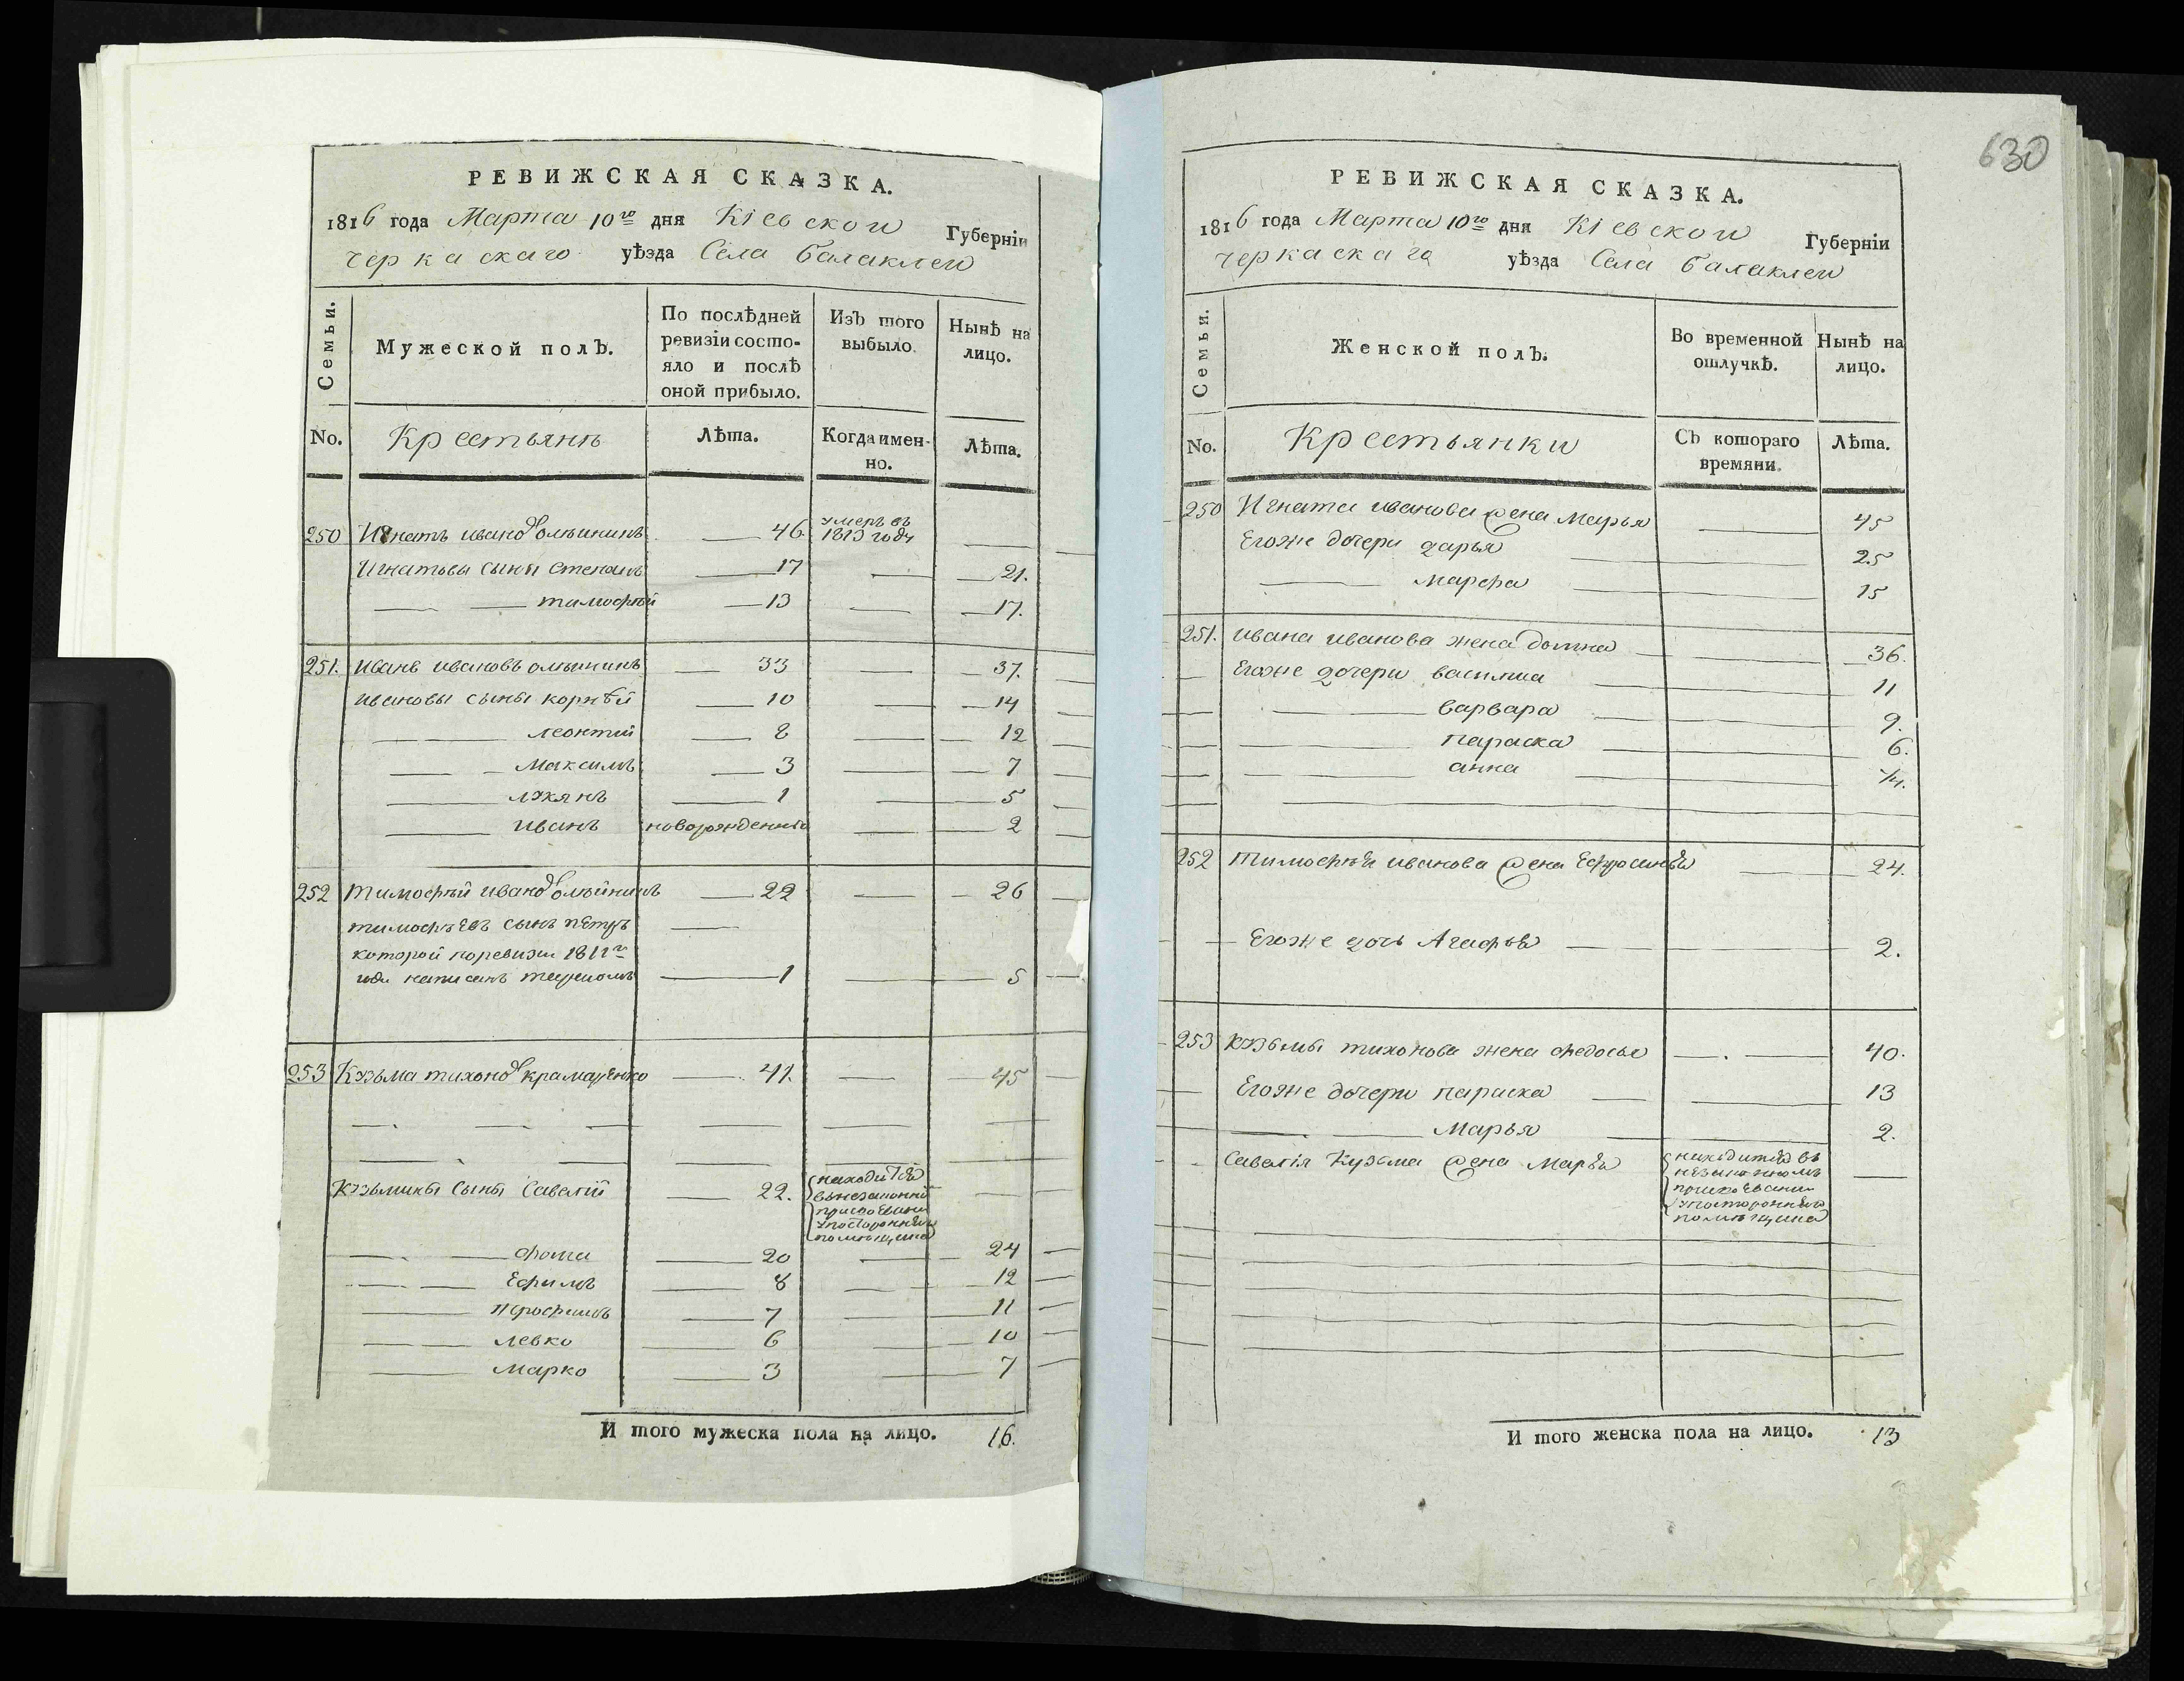 РЕВИЖСКАЯ СКАЗКА.
1816 года Марта 10го дня Кіевской Губерніи
черкаскаго уѣзда Села балаклеи
Семьи.
Мужеской полъ.
По послѣдней ревизіи состо-
яло и послѣ
оной прибыло.
Изъ того
выбыло.
Нынѣ на
лицо.
No.
Крестьянѣ
Лѣта.
Когда имен-
но.
Лѣта.
250 Игнатъ иванов олѣиникъ 46 умеръ въ
1813 году
Игнатовы сыны степанъ 17 21.
тимофѣй 13 17.
251. Иванъ ивановъ олѣиникъ 33 37.
ивановы сыны корнѣй 10 14
леонтий 8 12
Максимъ 3 7
лукянъ 1 5
иванъ новорожденны 2
252 тимофѣй иванов олѣйникъ 22 26
тимофѣевъ сынъ пЕтръ
которой поревизи 1811го
года написанъ 1 5
253 Кузьма тихонов крамаренко 41. 45
Кузьмины сыны Савелий 22. находится
внезаконний
присвоении
упосторонняго
помѣщика
фома 20 24
Ефимъ 8 12
7 11
левко 6 10
Марко 3 7
И того мужеска пола на лицо. 16.
630
РЕВИЖСКАЯ СКАЗКА.
1816 года Марта 10го дня Кіевской Губерніи
черкаскаго уѣзда Села балаклеи
Семьи.
Женской полъ.
Во временной
отлучкѣ.
Нынѣ на
лицо.
No.
Крестьянки
Съ котораго
времяни.
Лѣта.
250 Игната иванова жена Марья 45
Егоже дочери дарья 25
марфа 15
251. ивана иванова жена домна 36.
Егоже дочери василиа 11
варвара 9.
параска 6.
анна 1/4.
252 тимофѣя иванова жена Ефросинья 24.
Егоже дочь Агафья 2.
253 кузьмы тихонова жена федосья 40.
Егоже дочери параска 13
Марья 2.
савелія кузьма жена марья находится въ
незаконномъ
присвоении
упосторонняго
помѣщика
И того женска пола на лицо. 13